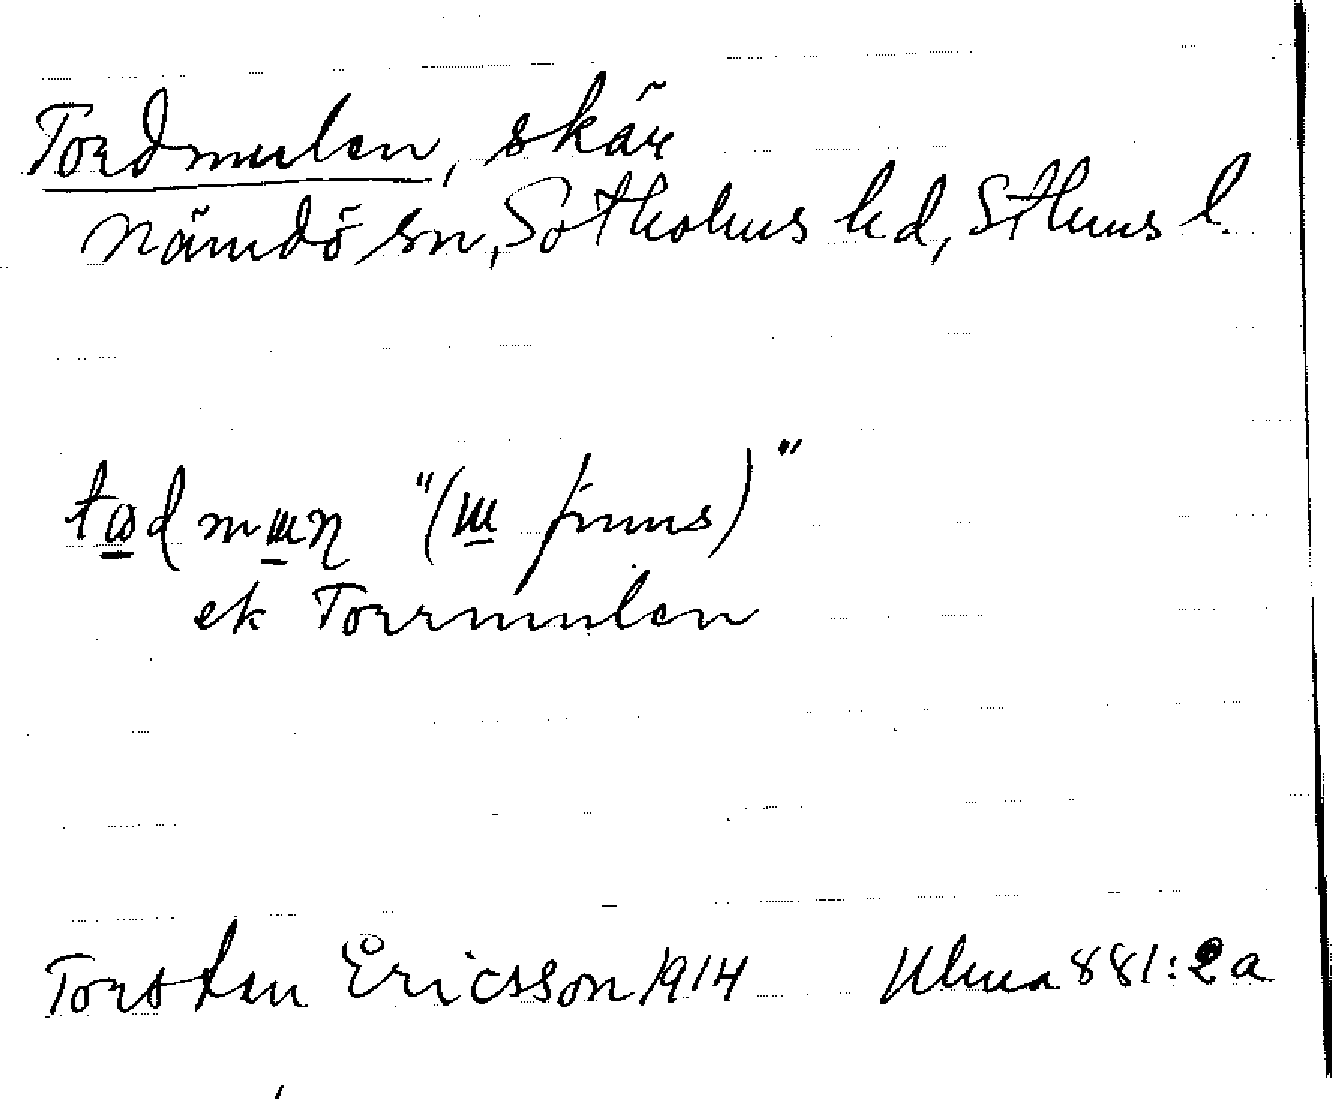 Tordmulen, skär
Nämdö sn, Sotholms hd, Sthms l.
tɷd mɯn "(ɯ finns)"
ek Torrmulen
Torsten Ericsson 1914 Ulma 881:2a